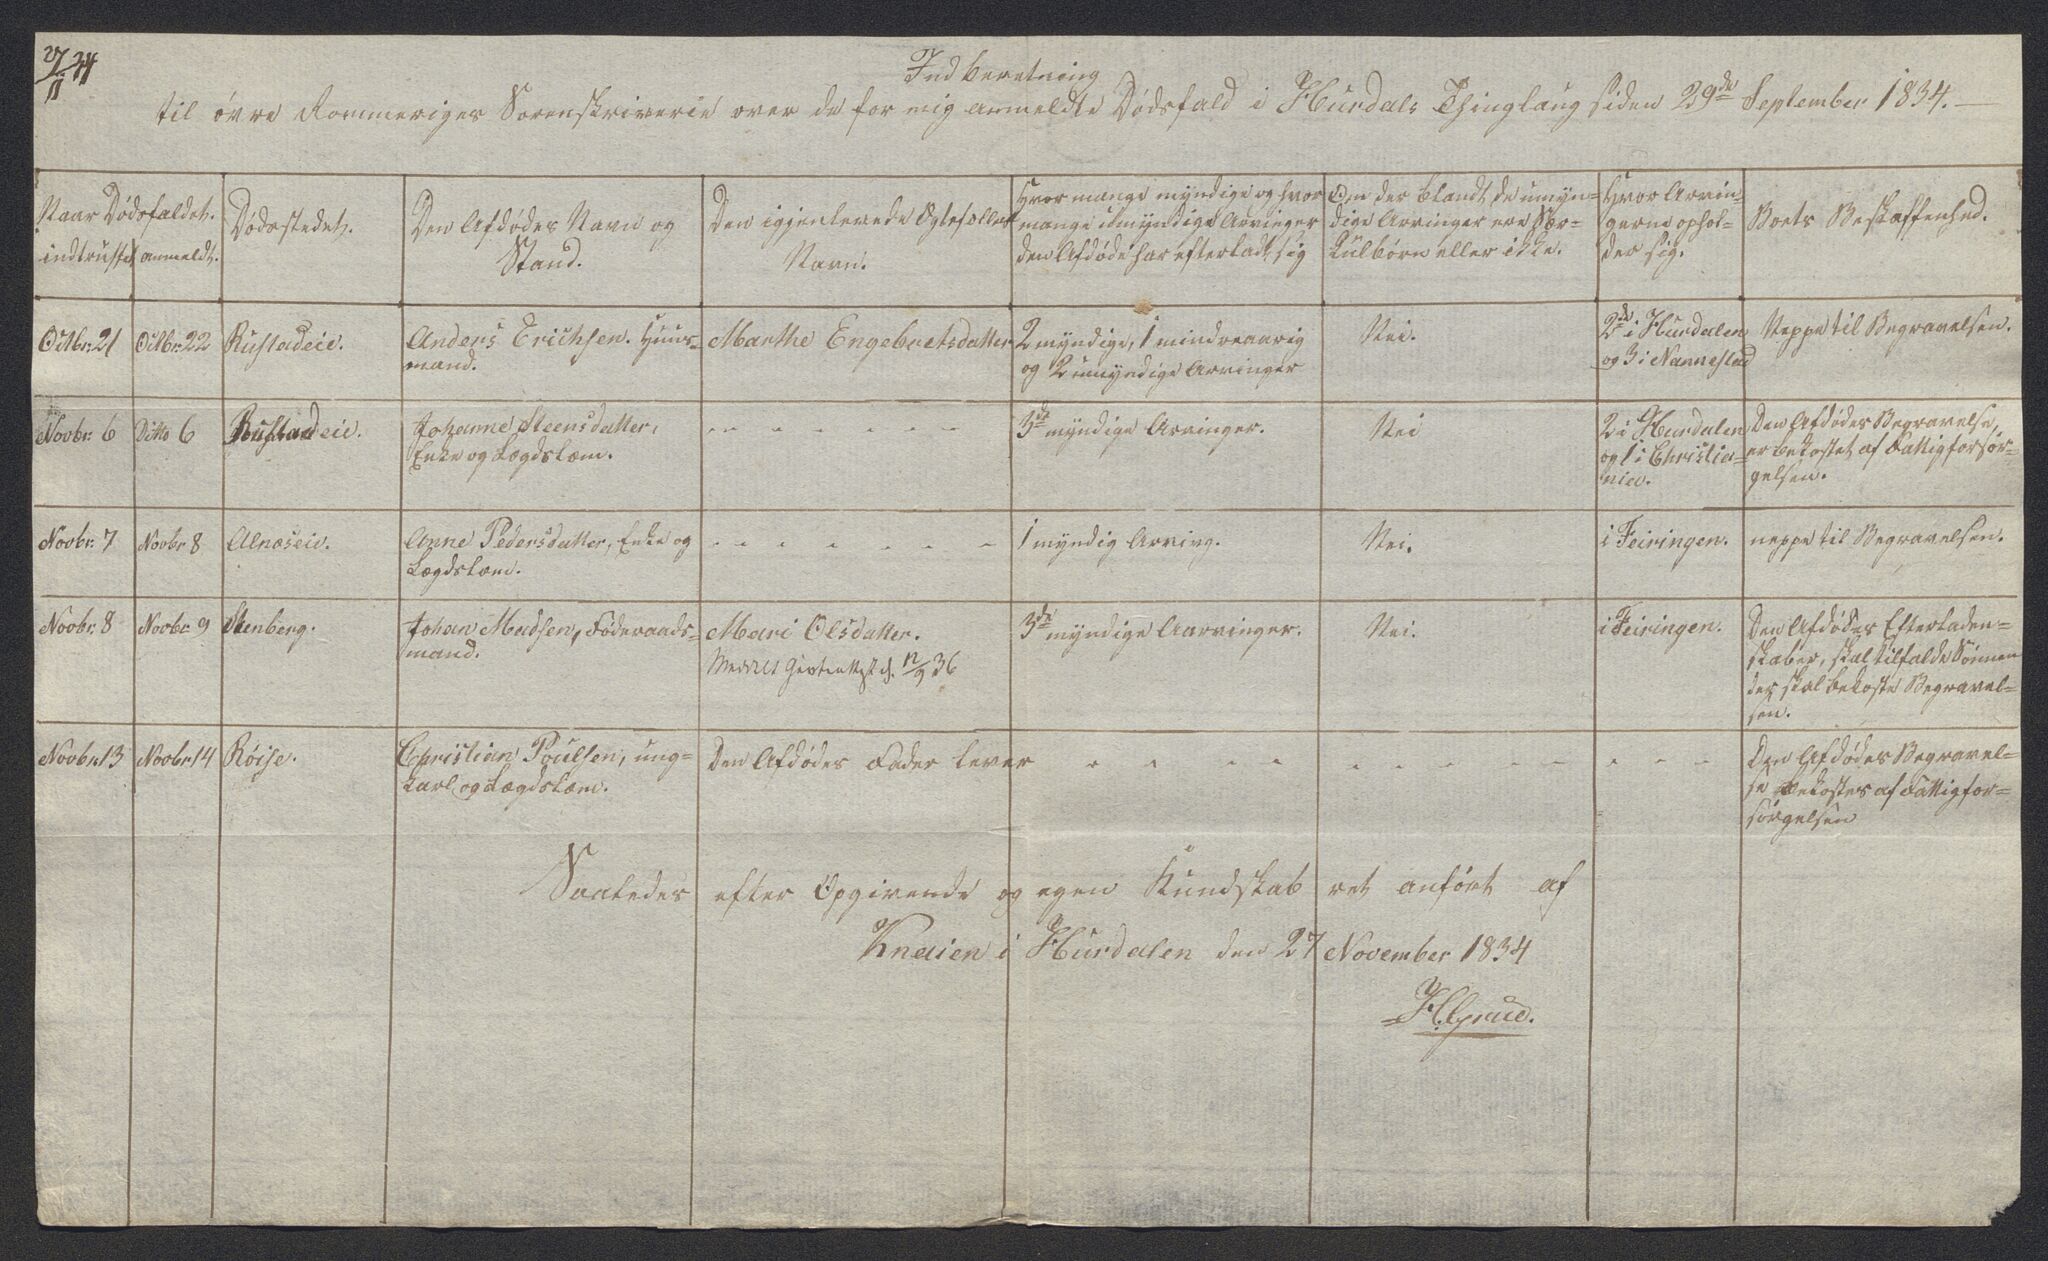 27/11 34
Indberetning
til øvre Rommeriges Sorenskriverie over de for mig anmeldte Dødsfald i Hurdals Thinglaug siden 29de September 1834.
Naar Dødsfaldet.
indtruffet anmeldt.
Dødsstedet.
Den Afdødes Navn og
Stand.
Den igjenlevende Egtefælles
Navn.
Hvor mange myndige og hvor
mange umyndige Arvinger
den Afdøde har efterladt sig
Om der blandt de umyn=
dige Arvinger ere Sær=
kulbørn eller ikke.
Hvor Arvin=
gerne ophol=
der sig.
Boets Beskaffenhed.
Octbr: 21
Octbr: 22
Rustadeie.
Anders Erichsen. Huus=
mand.
Marthe Engebretsdatter
2 myndige, 1 mindreaarig
og 2 umyndige Arvinger
Nei.
2de i Hurdalen
og 3 i Nannestad
Neppe til Begravelsen.
Novbr: 6
Ditto 6
Rustadeie.
Johanne Steensdatter,
Enke og Lægdslem.
3de myndige Arvinger.
Nei
2 i Hurdalen
og 1 i Christia=
nia.
Den Afdødes Begravelse,
er bekostet af Fattigforsør=
gelsen.
Novbr: 7
Novbr 8
Alnæseie.
Anne Pedersdatter, Enke og
Lægdslem.
1 myndig Arving.
Nei.
i Feiringen.
neppe til Begravelsen.
Novbr: 8
Novbr: 9
Stenberg.
Johan Madsen, Føderaads=
mand.
Mari Olsdatter.
12/9 36
3de myndige Aarvinger.
Nei.
i Feiringen.
Den Afdødes Efterladen=
skaber, skal tilfalde Sønnen
der skal bekoste Begravel=
sen.
Novbr: 13
Novbr 14
Røise.
Christian Poulsen, ung=
karl og Lægdslem.
Den Afdødes Fader lever
Den Afdødes Begravel=
se bekostes af Fattigfor=
sørgelsen
Saaledes efter Opgivende og egen Kundskab ret anført af
Knaien i Hurdalen den 27 November 1834
H. Grue.